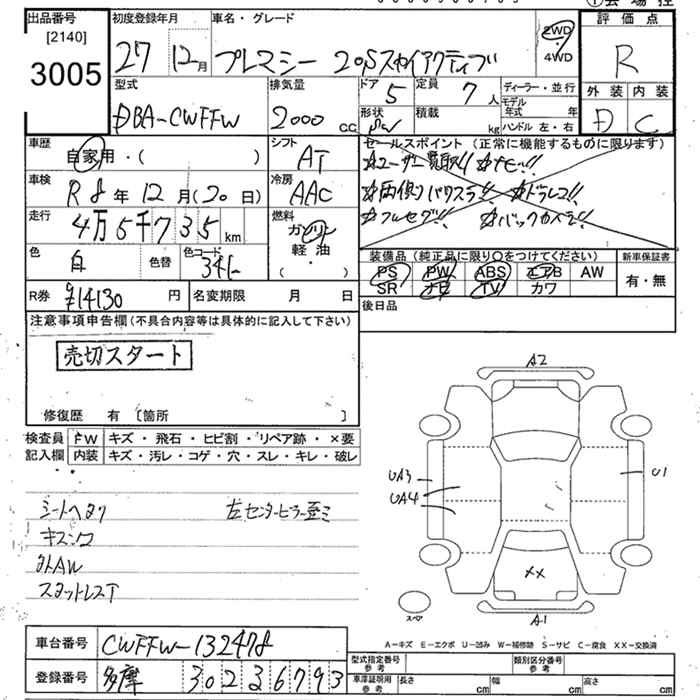 出品番号 初度登録年月 車名・グレード 2WD ・ 4WD 評価点
[2140]
3005 27 12月 プレマシー 20Sスカイアクティブ R
型式 排気量 ドア 5 定員 7人 ディーラー・並行 外装 内装
DBA-CWFFW 2000 cc 形状 積載 kg モデル年式 年 ハンドル 左・右 D C
車歴 自家用・( ) シフト AT セールスポイント(正常に機能するものに限ります)
ユーザー買取!! ナビ!!
車検 R8年12月(20日) 冷房 AAC 両側パワスラ!! ドラレコ!!
走行 4万5千735km 燃料 ガソリン 軽・油 ( ) フルセグ!! バックカメラ!!
色 白 色替 色コード 装備品(純正品に限り○をつけてください) 新車保証書
PS PW ABS エアB AW 有・無
SR ナビ TV カワ
R券 ¥14130円 名変期限 月 日 後日品
注意事項申告欄(不具合内容等は具体的に記入して下さい)
売切スタート
修復歴 有 〔箇所 〕
検査員 FW キズ・飛石・ヒビ割・リペア跡・×要
記入欄 内装 キズ・汚レ・コゲ・穴・スレ・キレ・破レ
A2
UA3 U1
UA4
シートヘタリ 左センターピラー歪ミ
キズンロ
外AW
スタットレスT
XX
スペア A1
A-キズ E-エクボ U-凹み W-補修跡 S-サビ C-腐食 XX-交換済
車台番号 CWFFW-132478
型式指定番号 参考 類別区分番号 参考
登録番号 多摩 302 3 6793
車庫証明用 参考 長さ cm 幅 cm 高さ cm